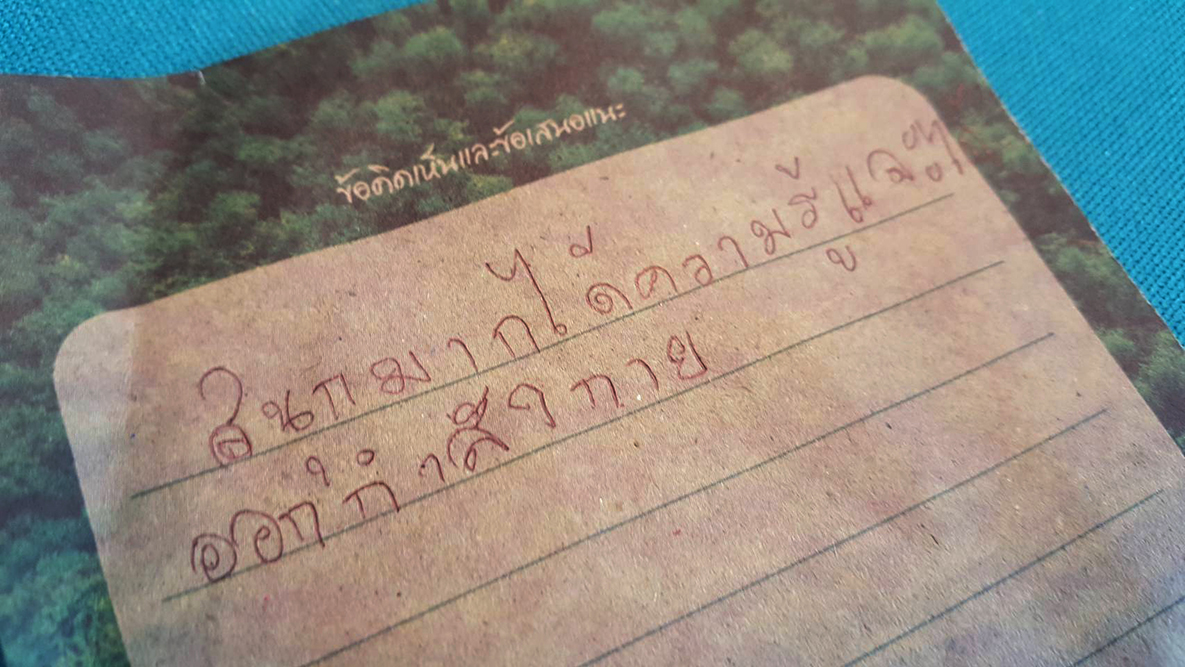 ข้อคิดเห็นและข้อเสนอแนะ
สนกมากได้ความรู้และ
ออกกำลังกาย